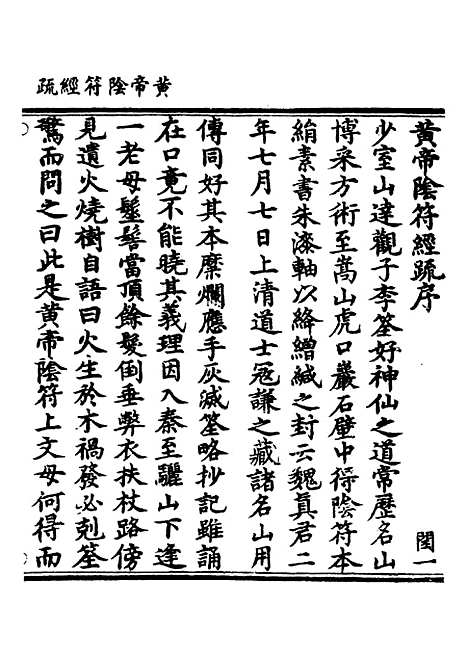 黄帝陰符經疏
黄帝陰符經疏序
閏一
少室山達觀子李筌好神仙之道常歷名山
博采方術至嵩山虎口巖石壁中得陰符本
絹素書朱漆軸以絳繒緘之封云魏真君二
年七月七日上清道士寇謙之藏諸名山用
傳同好其本糜爛應手灰滅筌略抄記雖誦
在口竟不能曉其義理因入秦至驪山下逢
一老母髽髻當頂餘髮倒垂弊衣扶杖路傍
見遺火燒樹自語曰火生於木禍發必剋筌
驚而問之曰此是黄帝陰符上文母何得而